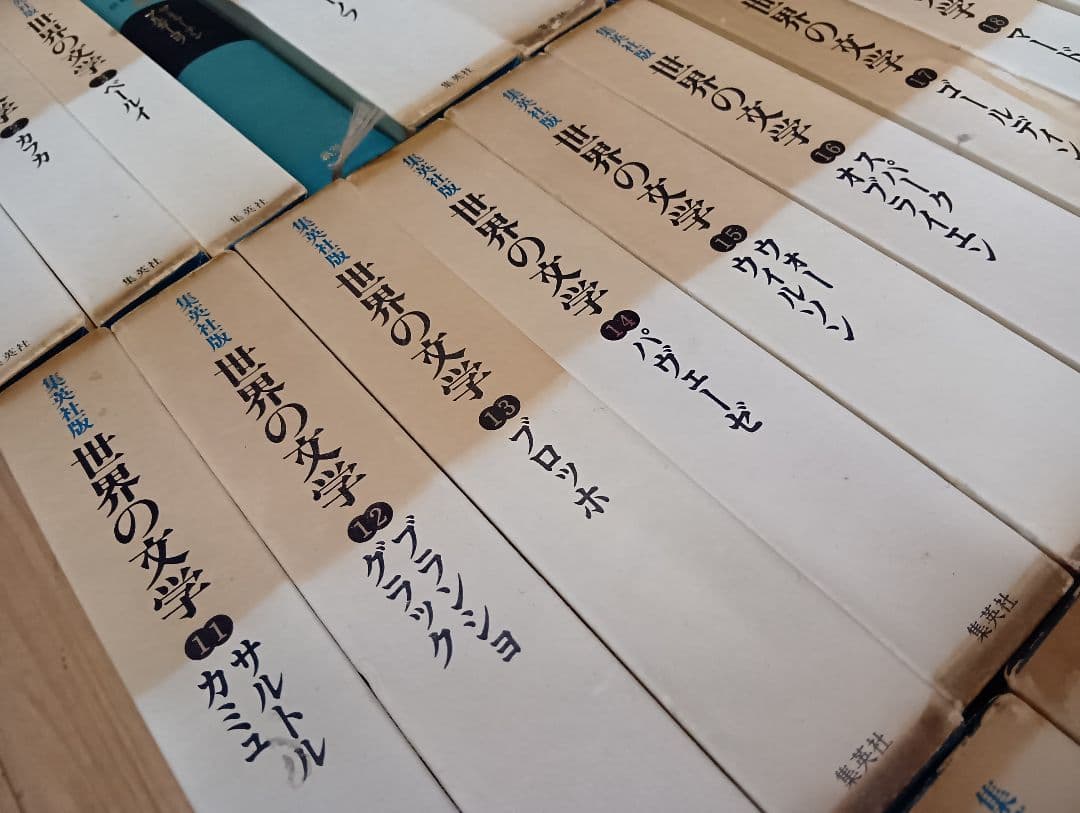 世界の文学
ベルイ
カフカ
集英社
集英社
集英社
集英社版
世界の文学
11
サルトル
カミュ
集英社版
世界の文学
12
ブランショ
グラック
集英社版
世界の文学
13
ブロッホ
集英社
集英社版
世界の文学
14
パヴェーゼ
集英社
集英社版
世界の文学
15
ウォー
ウィルソン
集英社版
世界の文学
16
スパーク
オブライエン
世界の文学
17
ゴールディング
18
マード
集英